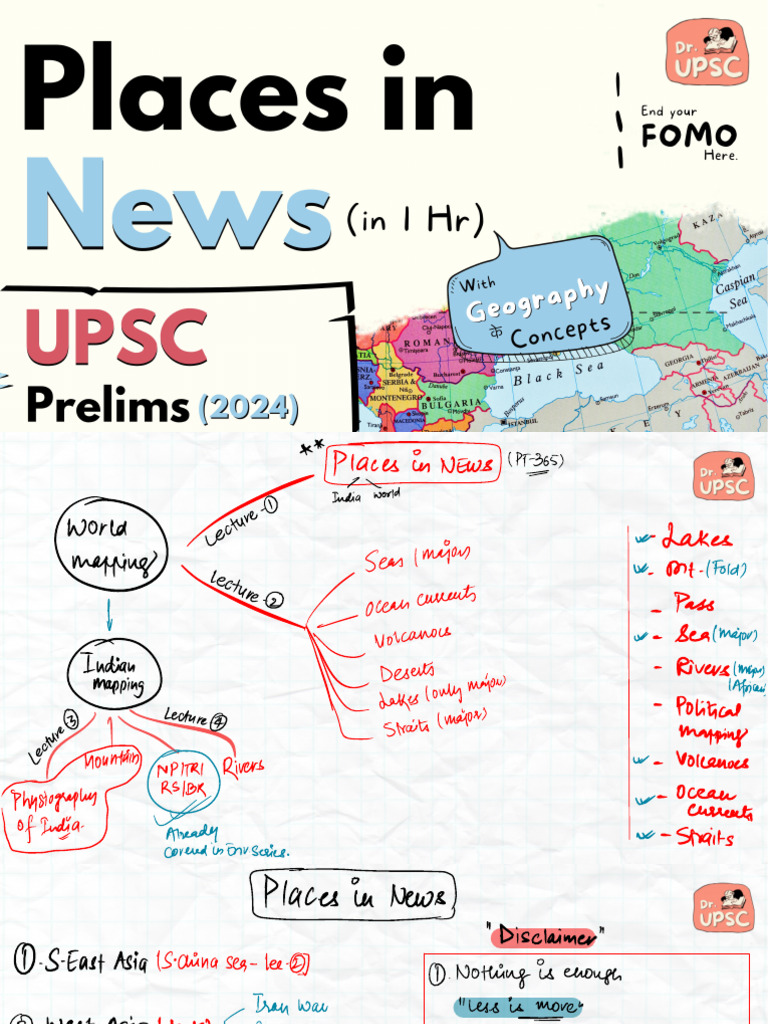 Places in
News (in 1 Hr)
Dr.
UPSC
End your
FOMO
Here.
With
Geography
के Concepts
UPSC
Prelims (2024)
KAZA
Caspian
Sea
ROMAN
Black Sea
BULGARIA
SERBIA &
MONTENEGRO
MACEDONIA
GEORGIA
AZERBAIJAN
ISTANBUL
** Places in News (PT-365)
India world
Dr.
UPSC
World
mapping
Lecture-①
Lecture-②
Seas (major)
Ocean currents
Volcanoes
Deserts
Lakes (only major)
Straits (major)
- Lakes
- Mt. (Fold)
- Pass
- Sea (major)
- Rivers (major)
(African)
- Political
mapping
- Volcanoes
- Ocean
currents
- Straits
Indian
mapping
Lecture ③
Lecture ④
Mountain
Physiography
of India.
NP/TR/
RS/BR
Rivers
Already
covered in Env Series.
Places in News
Dr.
UPSC
① S-East Asia (S.China sea - lec-②)
Iran war
"Disclaimer"
①. Nothing is enough
"Less is move"